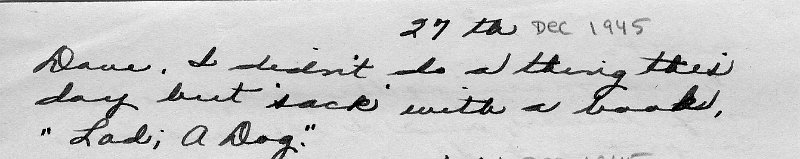 27 th Dec 1945
Dave. I didn't do a thing this
day but 'sack' with a book,
"Lad; A Dog."